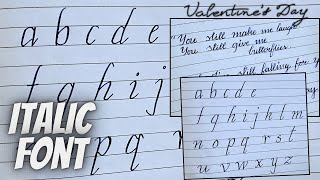 a b c d e
f g h i j
p q r
ITALIC
FONT
Valentine's Day
"You still make me laugh
You still give me
butterflies
still falling for y
a b c d e
f g h i j k l m
n o p q r s t
u v w x y z